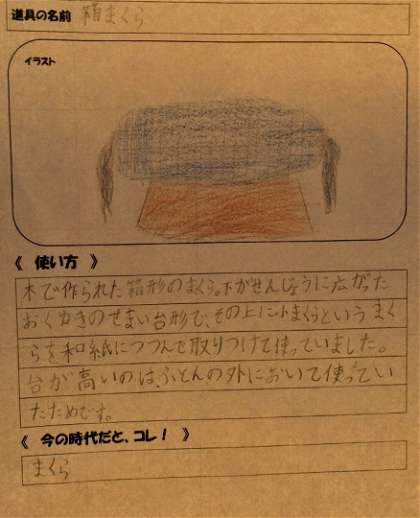 道具の名前 箱まくら
イラスト
《 使い方 》
木で作られた箱形のまくら。下がせんじょうに広がった
おくゆきのせまい台形で、その上に小まくらというまく
らを和紙につつんで取りつけて使っていました。
台が高いのは、ふとんの外において使ってい
たためです。
《 今の時代だと、コレ! 》
まくら